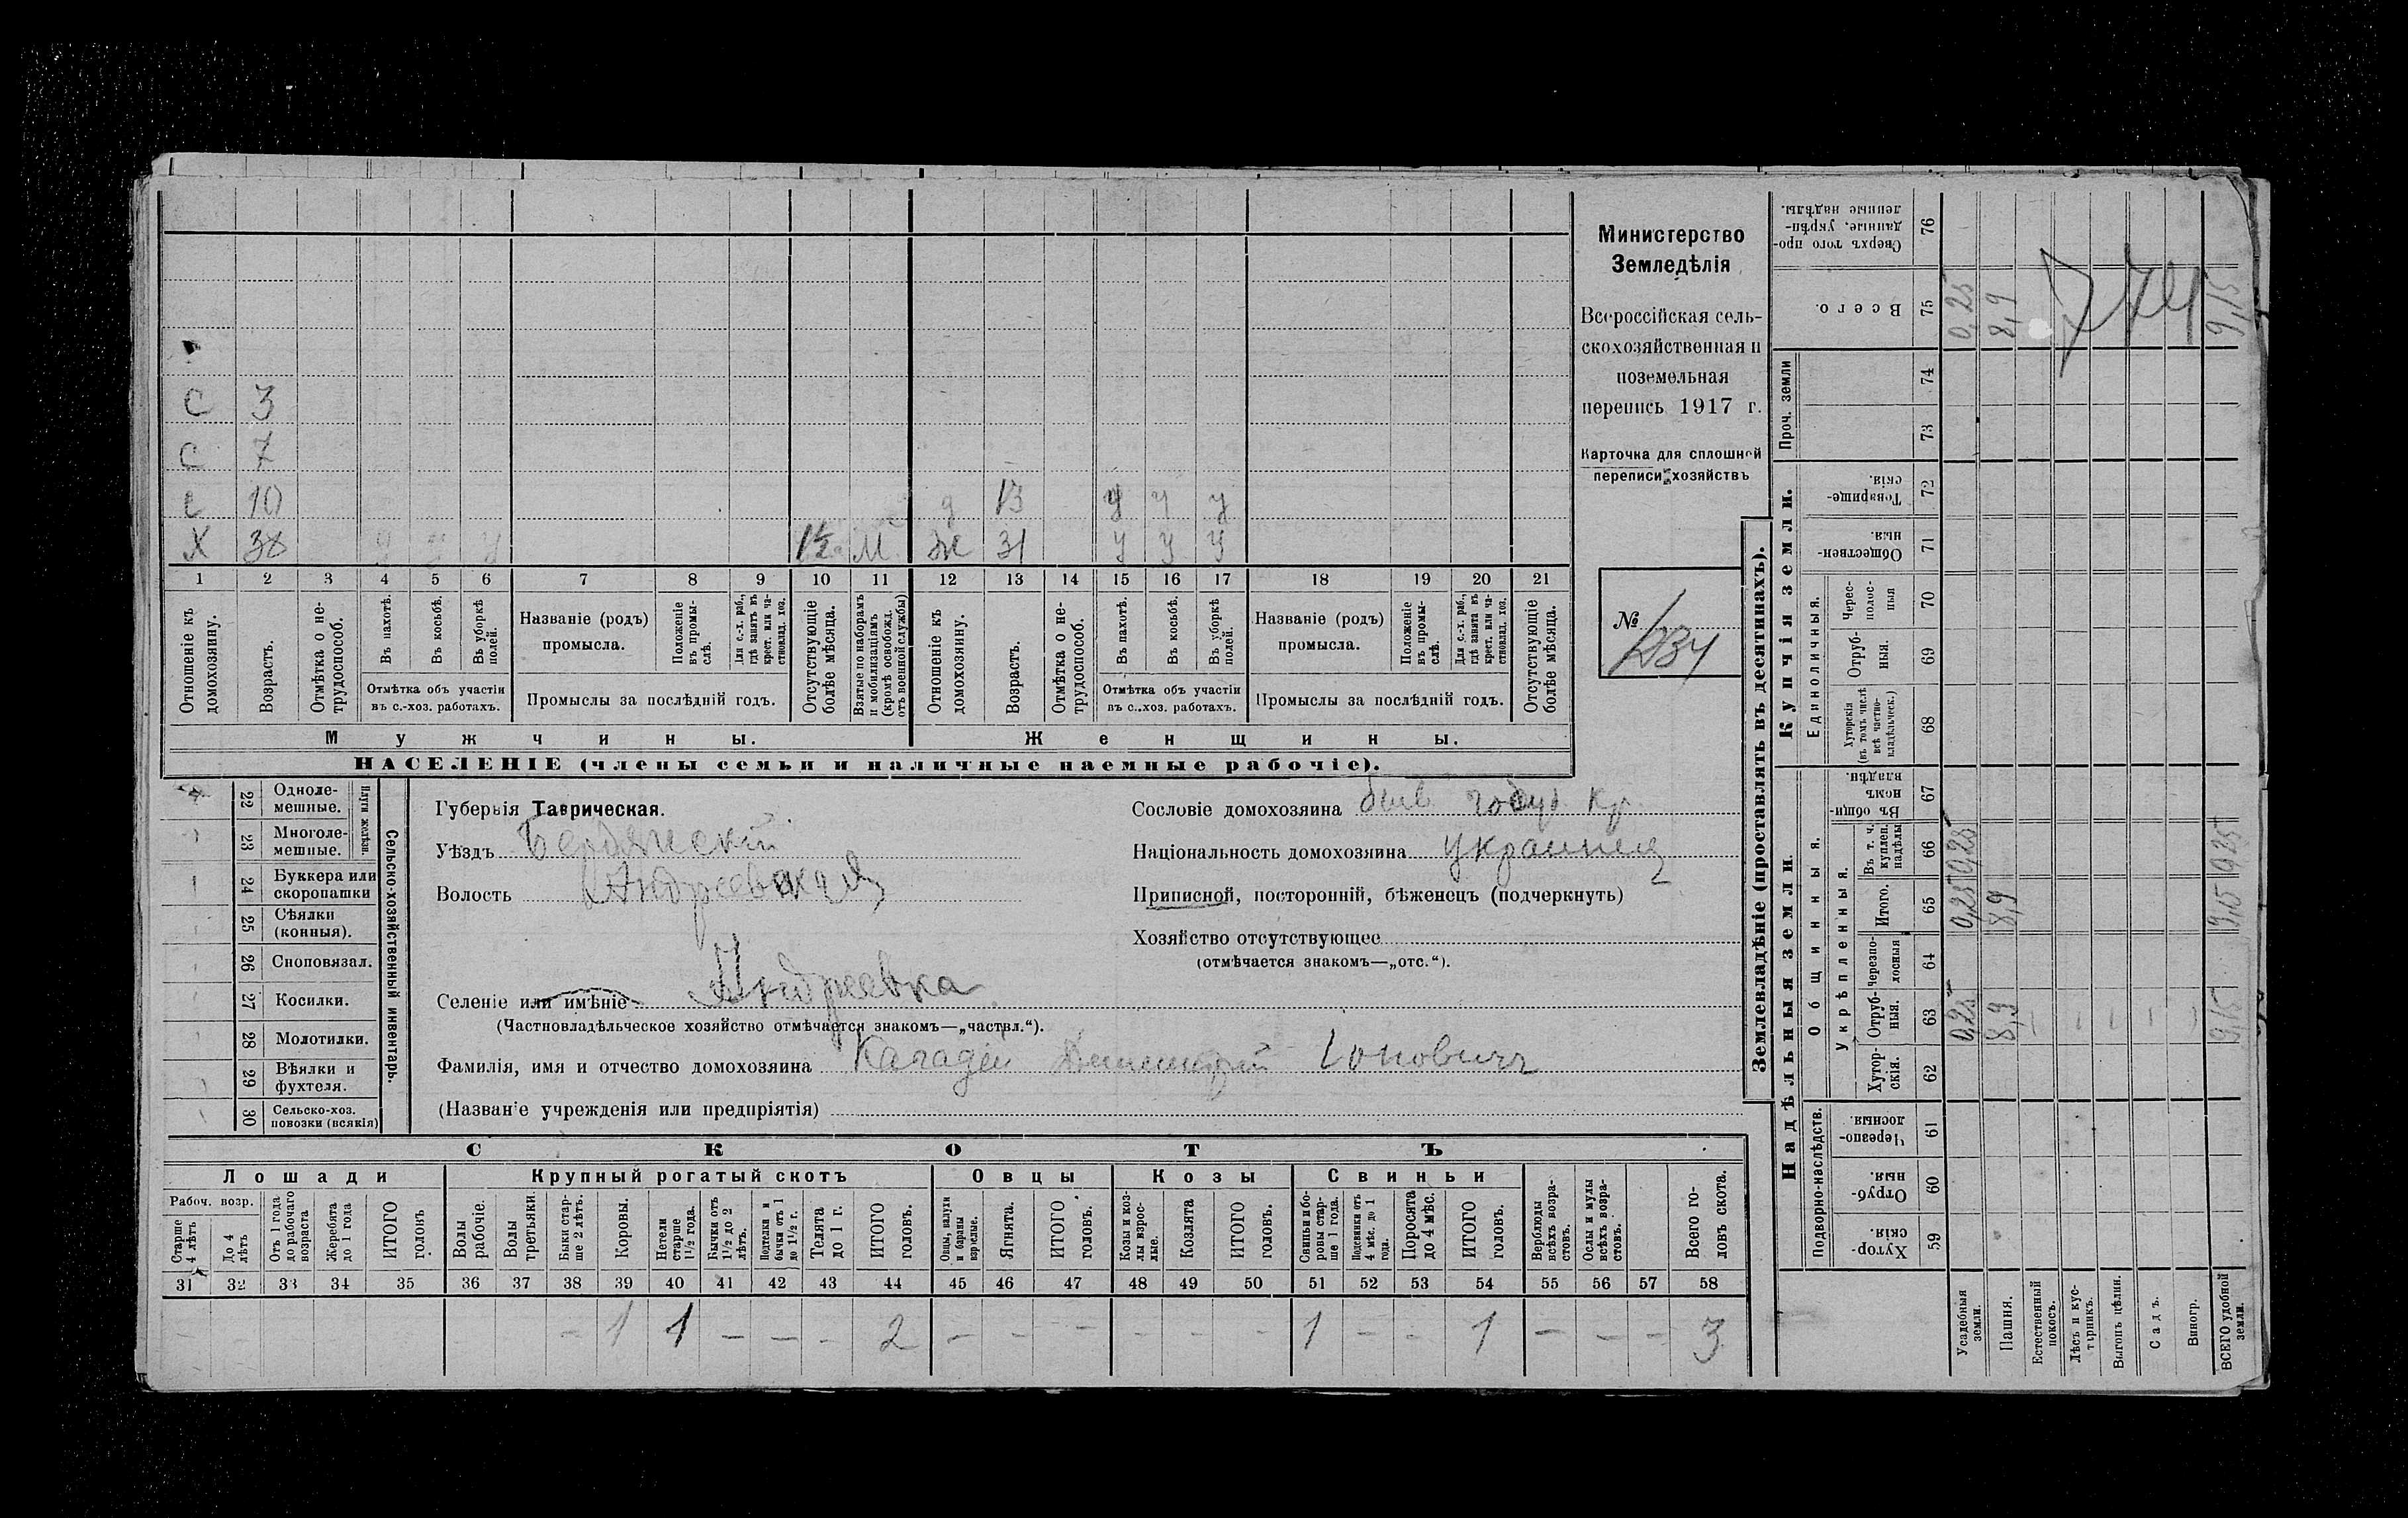 Министерство
Земледѣлія
Всероссійская сель-
скохозяйственная и
поземельная
перепись 1917 г.
Карточка для сплошной
переписи хозяйствъ
№ 234
С 3
С 7
С 10 д 13 у у у
Х 38 у у у 1½ М Ж 31 у у у
1 2 3 4 5 6 7 8 9 10 11 12 13 14 15 16 17 18 19 20 21
Отношеніе къ домохозяину.
Возрастъ.
Отмѣтка о не-трудоспособ.
Въ пахотѣ.
Въ косьбѣ.
Въ уборкѣ полей.
Отмѣтка объ участіи
въ с.-хоз. работахъ.
Названіе (родъ)
промысла.
Положеніе въ промы-слѣ.
Для с.-х. раб., гдѣ занятъ въ крест. или ча-стновлад. хоз.
Промыслы за послѣдній годъ.
Отсутствующіе болѣе мѣсяца.
Взятые по наборамъ и мобилизаціямъ (кромѣ освобожд. отъ военной службы)
Отношеніе къ домохозяину.
Возрастъ.
Отмѣтка о не-трудоспособ.
Въ пахотѣ.
Въ косьбѣ.
Въ уборкѣ полей.
Отмѣтка объ участіи
въ с.-хоз. работахъ.
Названіе (родъ)
промысла.
Положеніе въ промы-слѣ.
Для с.-х. раб., гдѣ занята въ крест. или ча-стновлад. хоз.
Промыслы за послѣдній годъ.
Отсутствующіе болѣе мѣсяца.
Мужчины. Женщины.
НАСЕЛЕНІЕ (члены семьи и наличные наемные рабочіе).
Сельско-хозяйственный инвентарь.
Плуги желѣзн.
22 Одноле-мешные.
23 Многоле-мешные.
24 Буккера или скоропашки
25 Сѣялки (конныя).
26 Сноповязал.
27 Косилки.
28 Молотилки.
29 Вѣялки и фухтеля.
30 Сельско-хоз. повозки (всякія)
Губернія Таврическая.
Уѣздъ Бердянскій
Волость Андреевская
Селеніе или имѣніе Андреевка
(Частновладѣльческое хозяйство отмѣчается знакомъ—„частвл.“).
Фамилія, имя и отчество домохозяина Карадій Дмитрій
(Названіе учрежденія или предпріятія)
Сословіе домохозяина бывш. госуд. кр.
Національность домохозяина украинец
Приписной, посторонній, бѣженецъ (подчеркнуть)
Хозяйство отсутствующее
(отмѣчается знакомъ—„отс.“).
СКОТЪ
Лошади Крупный рогатый скотъ Овцы Козы Свиньи
Рабоч. возр.
Старше 4 лѣтъ
До 4 лѣтъ
Отъ 1 года до рабочаго возраста
Жеребята до 1 года
ИТОГО головъ
Волы рабочіе.
Волы третьяки.
Быки стар-ше 2 лѣтъ.
Коровы.
Нетели старше 1½ года.
Бычки отъ 1½ до 2 лѣтъ.
Подтелки и бычки отъ 1 до 1½ г.
Телята до 1 г.
ИТОГО головъ.
Овцы, валухи и бараны взрослые.
Ягнята.
ИТОГО головъ.
Козы и коз-лы взрос-лые.
Козлята
ИТОГО головъ.
Свиньи и бо-ровы стар-ше 1 года.
Подсвинки отъ 4 мѣс. до 1 года.
Поросята до 4 мѣс.
ИТОГО головъ.
Верблюды всѣхъ возра-стовъ.
Ослы и мулы всѣхъ возра-стовъ.
Всего го-ловъ скота.
31 32 33 34 35 36 37 38 39 40 41 42 43 44 45 46 47 48 49 50 51 52 53 54 55 56 57 58
— 1 1 — — — 2 — — — — — — 1 — — 1 — — — 3
Землевладѣніе (проставлять въ десятинахъ).
Надѣльныя земли. Купчія земли. Проч. земли
Подворно-наслѣдств. Общинныя. Единоличныя.
Укрѣпленныя.
59 Хутор-скія.
60 Отруб-ныя.
61 Черезпо-лосныя
62 Хутор-скія.
63 Отруб-ныя.
64 Черезпо-лосныя
65 Итого.
66 Въ т. ч. куплен. надѣлы
67 Въ общи-номъ владѣн.
68 Хуторскія (въ томъ числѣ всѣ частно-владѣльческ.)
69 Отруб-ныя.
70 Черес-полос-ныя
71 Обществен-ныя.
72 Товарище-скія.
73
74
75 Всего.
76 Сверхъ того про-данные, укрѣп-ленные надѣлы.
Усадебныя земли. 0,25 0,25 0,25 0,25
Пашня. 8,9 8,9 8,9
Естественный покосъ.
Лѣсъ и кус-тарникъ.
Выгонъ цѣлин.
Садъ.
Виногр.
ВСЕГО удобной земли. 9,15 9,15 0,25 9,15
774